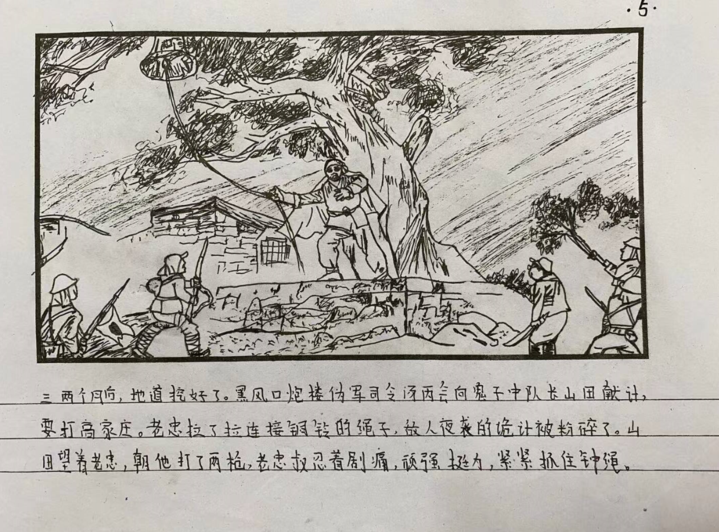 ·5·
三两个月后,地道挖好了。黑风口炮楼伪军司令汤丙会向鬼子中队长山田献计,
要打高家庄。老忠拉了拉连接铜铃的绳子,敌人夜袭的诡计被粉碎了。山
田望着老忠,朝他打了两枪。老忠叔忍着剧痛,顽强挺立,紧紧抓住钟绳。